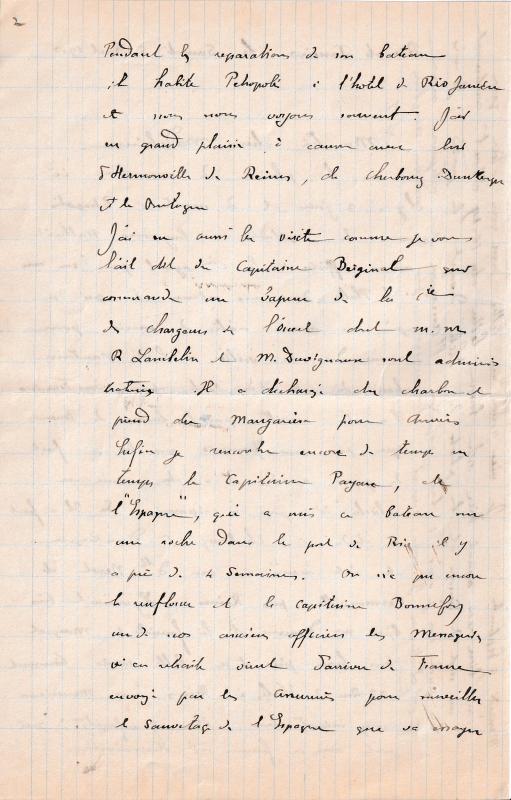 2
Pendant les reparations de son bateau
il habite Petropolis à l'hotel de Rio Janeiro
et nous nous voyons souvent. J'ai
un grand plaisir à causer avec lui
d'Hermonville de Reims, de Cherbourg Dunkerque
et la Bretagne
J'ai eu aussi la visite comme je vous
l'ait dit du Capitaine qui
commande un vapeur de la Cie
des chargeurs de l'Ouest dont m.m
R Lambelin et M. sont adminis
trateurs. Il a déchargé du charbon et
prend du Manganèse pour Anvers
Enfin je rencontre encore de temps en
temps le Capitaine , de
l'"Espagne", qui a mis ce bateau sur
une roche dans le port de Rio il y
a près de 4 Semaines. On n'a pu encore
le renflouer et le capitaine Bonnefoy
un de nos anciens officiers des Messageries
en retraite vient d'arriver de France
envoyé par les assureurs pour surveiller
le Sauvetage de l'Espagne que va essayer